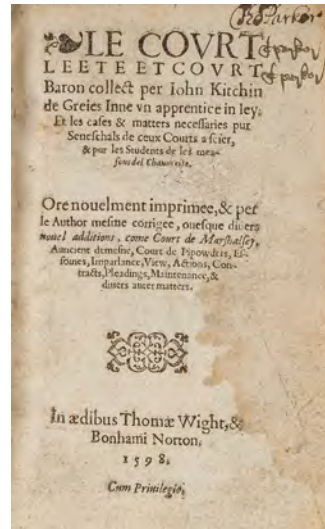 R Parker
LE COVRT
LEETE ET COVRT
Baron collect per Iohn Kitchin
de Greies Inne vn apprentice in ley.
Et les cases & matters necessaries pur
Seneschals de ceux Courts a scier,
& pur les Students de les mea-
sons del Chauncerie.
Ore nouelment imprimee, & per
le Author mesme corrigee, ouesque diuers
nouel additions, come Court de Marshalsey,
Auncient demesne, Court de Pipowders, Es-
soines, Imparlance, View, Actions, Con-
tracts, Pleadings, Maintenance, &
diuers auter matters.
In ædibus Thomæ Wight, &
Bonhami Norton.
1598.
Cum Priuilegio.